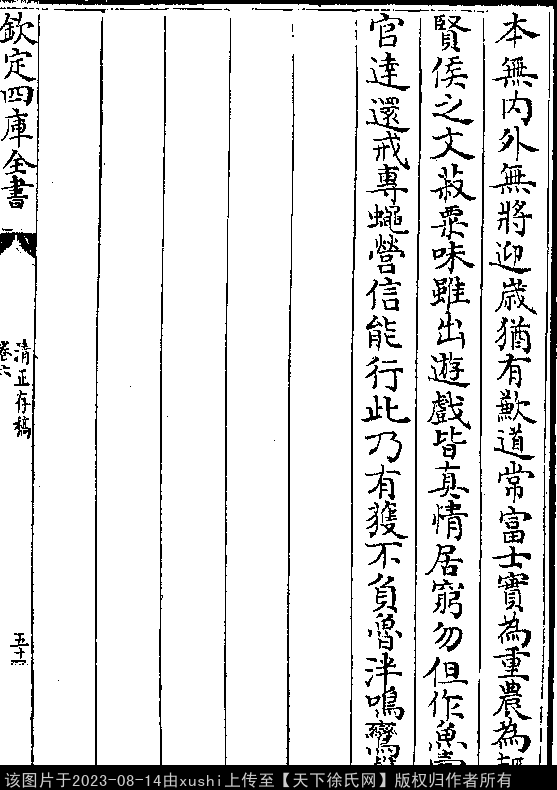 本無内外無將迎歲猶有歉道常富士實為重農為輕
賢侯之文菽粟味雖出遊戲皆真情居窮勿但作魚
官達還戒專蠅營信能行此乃有獲不負魯泮鳴鸞
欽定四庫全書
清正存稿
卷六
五十一
该图片于2023-08-14由xushi上传至【天下徐氏网】版权归作者所有